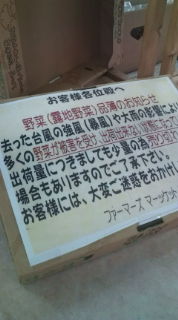 お客様各位殿へ
野菜(露地野菜)品薄のお知らせ
去った台風の強風(暴風)や大雨の影響により
多くの野菜が被害を受け、出荷出来ない状態になって
出荷量につきましても少量の為
場合もありますのでご了承下さい。
お客様には、大変ご迷惑をおかけし
ファーマーズ マーケット